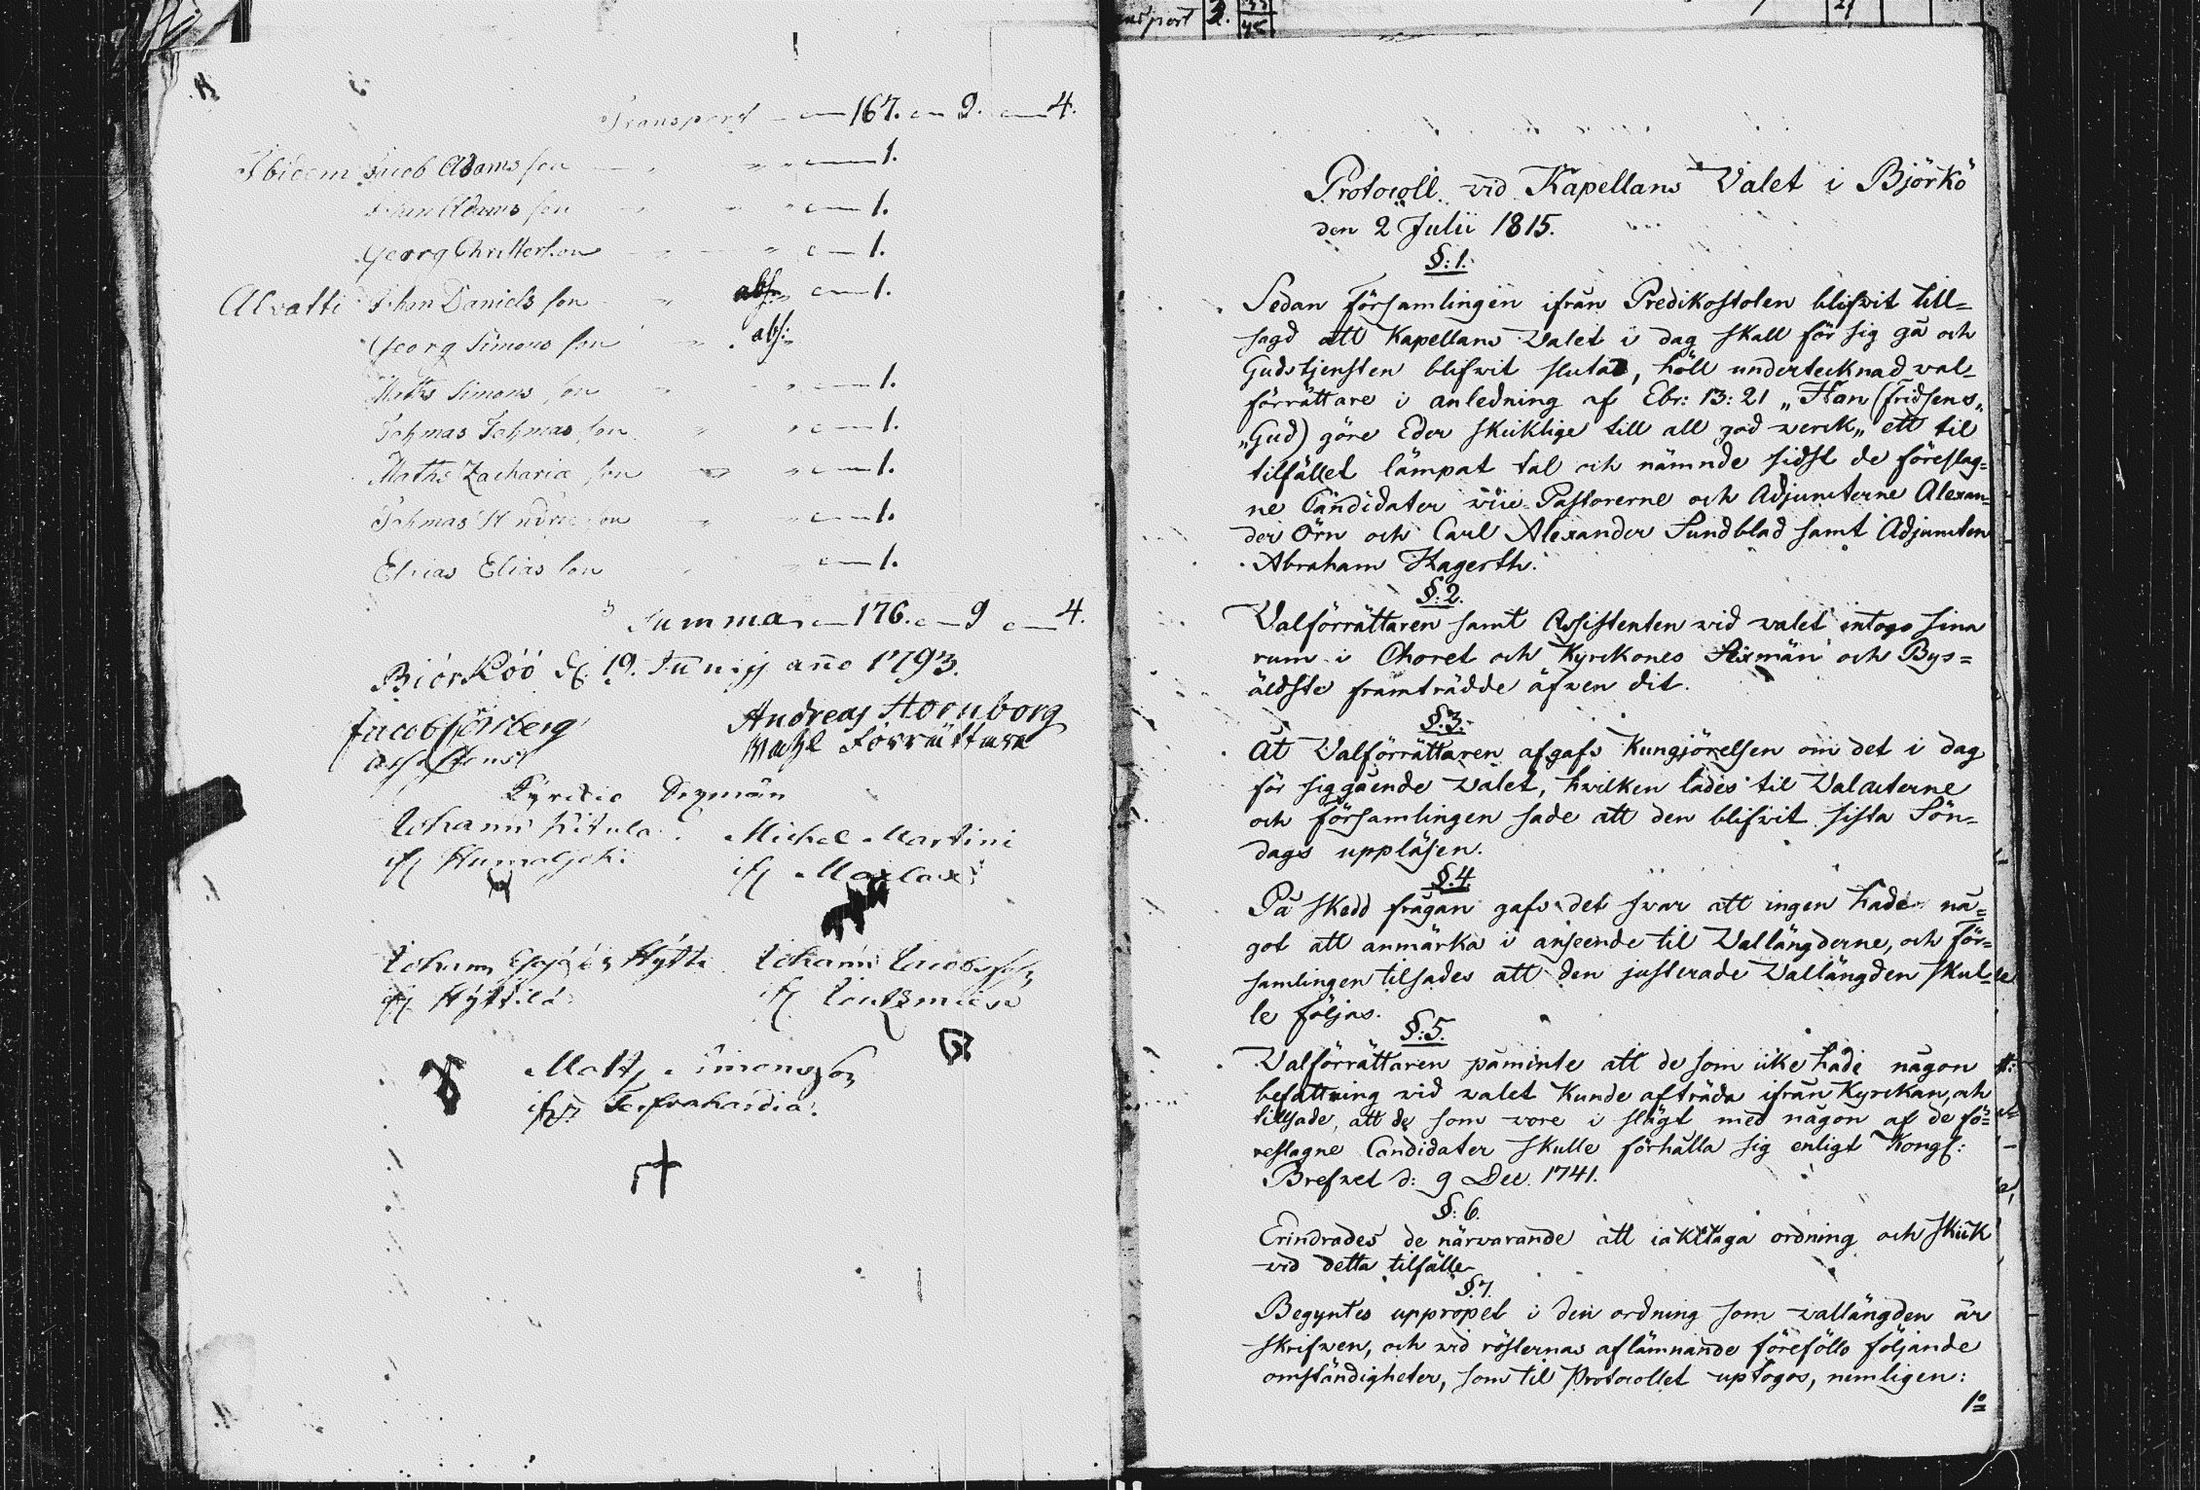 Transport 167. 2. 4.
Ibidem Jacob Adams son 1.
Johan Adams son 1.
Georg Christerson 1.
Alvatti Johan Daniels son abs: 1.
Georg Simons son abs:
Maths Simons son 1.
Tohmas Tohmas son 1.
Maths Zacharia son 1.
Tohmas Hndric son 1.
Elias Elias son 1.
Summa 176. 9 4.
Biörköö d. 19. Junij año 1793.
Andreas Hornborg
Wahl Förrättare
Johann
Michel Martini
Johann Hÿttä Johann Jacobsson
ifr. Hÿttilä
Matts Simonsson
Protocoll vid Kapellans Valet i Björkö
den 2 Julii 1815.
§: 1.
Sedan församlingen ifrån Predikostolen blifvit till=
sagd att Kapellans Valet i dag skall för sig gå och
Gudstjensten blifvit slutad, höll undertecknad val=
förrättare i anledning af Ebr: 13: 21 „Han (Fridsens„
„Gud) göre Eder skicklige till all god werck„ ett til
tilfället lämpat tal och nämnde sidst de föreslag=
ne Candidater Pastorerne och Adjuncterne Alexan=
der Örn och Carl Alexander Sundblad samt Adjuncten
Abraham Hagerth.
§: 2.
Valförrättaren samt Assistenten vid valet intogo sina
rum i Choret och Kyrckones Sexmän och Bys=
äldste framträdde äfven dit.
§: 3.
At Valförrättaren afgafs Kungjörelsen om det i dag
för siggående Valet, hvilken lades til Valacterne
och församlingen sade att den blifvit sista Sön=
dags uppläsen.
§: 4
På skedd frågan gafs det svar att ingen hade nå=
got att anmärka i anseende til Vallängderne, och för=
samlingen tilsades att den justerade Vallängden skul=
le följas.
§: 5.
Valförrättaren påminte att de som icke hade någon
befattning vid valet kunde afträda ifrån Kyrckan, och
tillsade, att de som vore i slägt med någon af de fö=
reslagne Candidater skulle förhålla sig enligt Kongl:
Brefvet d: 9 Dec. 1741.
§: 6.
Erindrades de närvarande att iakttaga ordning och skick
vid detta tilfälle
§: 7.
Begyntes uppropet i den ordning som vallängden är
skrifven, och vid rösternas aflämnande föreföllo följande
omständigheter, som til Protocollet uptogos, nemligen:
1º